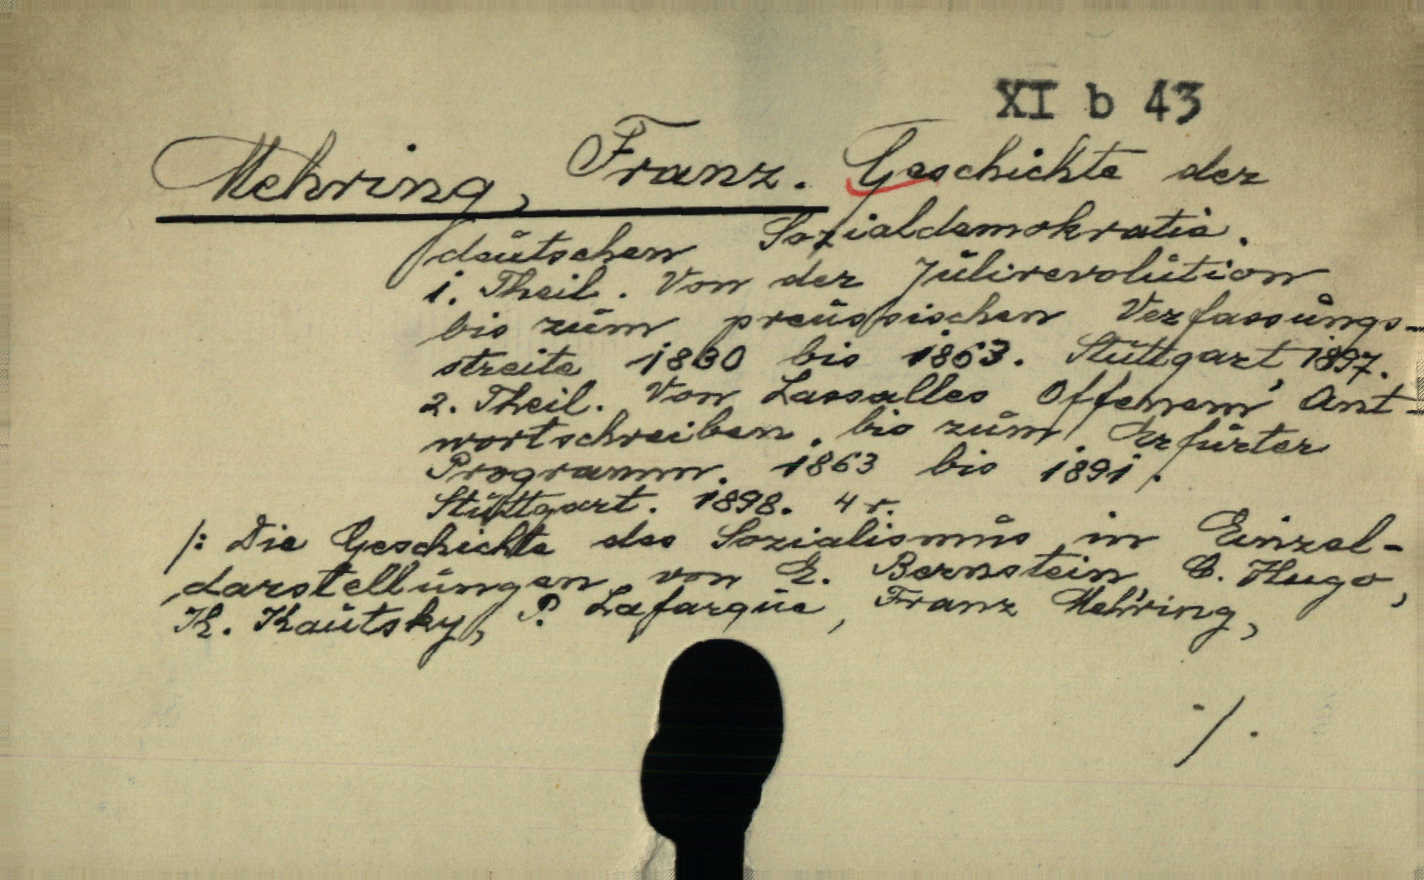 XI b 43
Mehring, Franz. Geschichte der
deutschen Sozialdemokratie.
1. Theil. Von der Julirevolution
bis zum preussischen Verfassungs-
streite 1830 bis 1863. Stuttgart 1897.
2. Theil. Von Lassalles Offenem Ant-
wortschreiben bis zum Erfurter
Programm. 1863 bis 1891.
Stuttgart. 1898. 4 r.
/: Die Geschichte des Sozialismus in Einzel-
darstellungen von E. Bernstein, C. Hugo,
K. Kautsky, P. Lafargue, Franz Mehring,
·/.